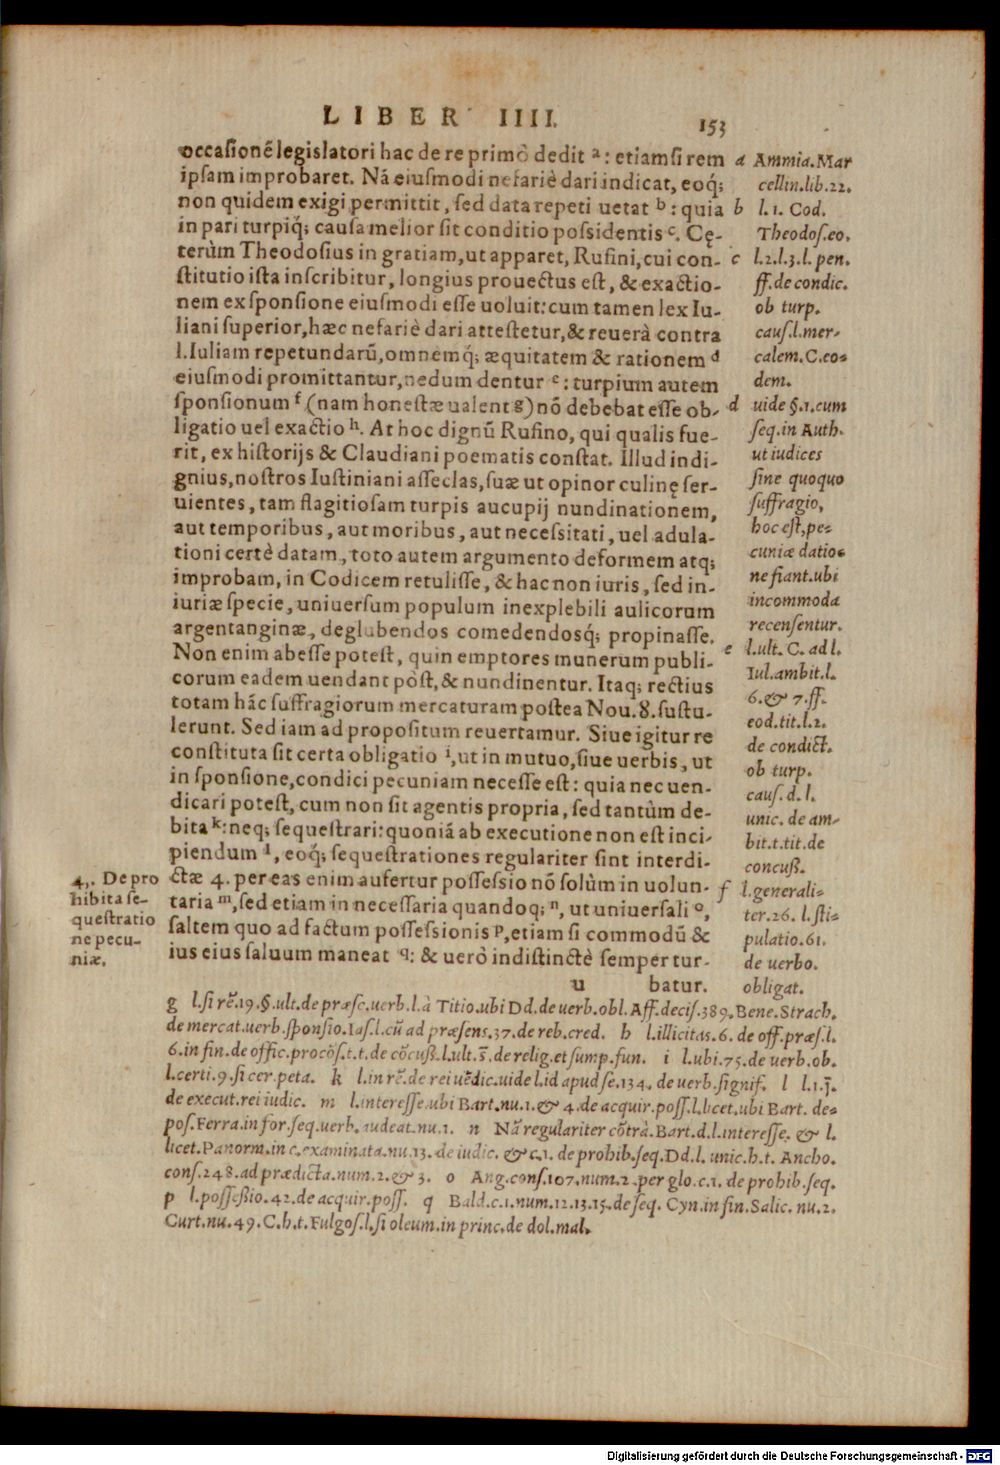 LIBER IIII. 153
occasionẽ legislatori hac de re primò dedit ᵃ: etiamsi rem
ipsam improbaret. Nã eiusmodi nefariè dari indicat, eoq́;
non quidem exigi permittit, sed data repeti uetat ᵇ: quia
in pari turpiq́; causa melior sit conditio possidentis ᶜ. Cę-
terùm Theodosius in gratiam, ut apparet, Rufini, cui con-
stitutio ista inscribitur, longius prouectus est, & exactio-
nem ex sponsione eiusmodi esse uoluit: cum tamen lex Iu-
liani superior, hæc nefariè dari attestetur, & reuerà contra
l. Iuliam repetundarũ, omnemq́; æquitatem & rationem ᵈ
eiusmodi promittantur, nedum dentur ᵉ: turpium autem
sponsionum ᶠ (nam honestæ ualent g) nõ debebat esse ob-
ligatio uel exactio ʰ. At hoc dignũ Rufino, qui qualis fue-
rit, ex historijs & Claudiani poematis constat. Illud indi-
gnius, nostros Iustiniani asseclas, suæ ut opinor culinę ser-
uientes, tam flagitiosam turpis aucupij nundinationem,
aut temporibus, aut moribus, aut necessitati, uel adula-
tioni certè datam, toto autem argumento deformem atq;
improbam, in Codicem retulisse, & hac non iuris, sed in-
iuriæ specie, uniuersum populum inexplebili aulicorum
argentanginæ, deglubendos comedendosq́; propinasse.
Non enim abesse potest, quin emptores munerum publi-
corum eadem uendant pòst, & nundinentur. Itaq; rectius
totam hãc suffragiorum mercaturam postea Nou. 8. sustu-
lerunt. Sed iam ad propositum reuertamur. Siue igitur re
constituta sit certa obligatio ⁱ, ut in mutuo, siue uerbis, ut
in sponsione, condici pecuniam necesse est: quia nec uen-
dicari potest, cum non sit agentis propria, sed tantùm de-
bita ᵏ: neq; sequestrari: quoniã ab executione non est inci-
piendum ˡ, eoq́; sequestrationes regulariter sint interdi-
ctæ 4. per eas enim aufertur possessio nõ solùm in uolun-
taria ᵐ, sed etiam in necessaria quandoq; ⁿ, ut uniuersali ᵒ,
saltem quo ad factum possessionis ᵖ, etiam si commodũ &
ius eius saluum maneat q: & uerò indistinctè semper tur-
u batur.
a Ammia. Mar
cellin. lib. 22.
b l. 1. Cod.
Theodos. eo.
c l. 2. l. 3. l. pen.
ff. de condic.
ob turp.
caus. l. mer-
calem. C. eo-
dem.
d uide §. 1. cum
seq. in Auth.
ut iudices
sine quoquo
suffragio,
hoc est, pe-
cuniæ datio-
ne fiant. ubi
incommoda
recensentur.
e l. ult. C. ad l.
Iul. ambit. l.
6. & 7. ff.
eod. tit. l. 2.
de condict.
ob turp.
caus. d. l.
unic. de am-
bit. t. tit. de
concuß.
f l. generali-
ter. 26. l. sti-
pulatio. 61.
de uerbo.
obligat.
4. De pro
hibita se-
questratio
ne pecu-
niæ.
g l. si rẽ. 19. §. ult. de præsc. uerb. l. à Titio. ubi Dd. de uerb. obl. Aff. decis. 389. Bene. Strach.
de mercat. uerb. sponsio. Ias. l. cũ ad præsens. 37. de reb. cred. h l. illicitas. 6. de off. præs. l.
6. in fin. de offic. procõs. t. t. de cõcuß. l. ult. s̃. de relig. et sump. fun. i l. ubi. 75. de uerb. ob.
l. certi. 9. si cer. peta. k l. in rẽ. de rei uẽdic. uide l. id apud se. 134. de uerb. signif. l l. 1. j̃.
de execut. rei iudic. m l. interesse. ubi Bart. nu. 1. & 4. de acquir. poss. l. licet. ubi Bart. de-
pos. Ferra. in for. seq. uerb. audeat. nu. 1. n Nã regulariter cõtrà. Bart. d. l. interesse. & l.
licet. Panorm. in c. examinata. nu. 13. de iudic. & c. 1. de prohib. seq. Dd. l. unic. h. t. Ancho.
cons. 248. ad prædicta. num. 2. & 3. o Ang. cons. 107. num. 2. per glo. c. 1. de prohib. seq.
p l. posseßio. 42. de acquir. poss. q Bald. c. 1. num. 12. 13. 15. de seq. Cyn. in fin. Salic. nu. 2.
Curt. nu. 49. C. h. t. Fulgos. l. si oleum. in princ. de dol. mal.
Digitalisierung gefördert durch die Deutsche Forschungsgemeinschaft - DFG